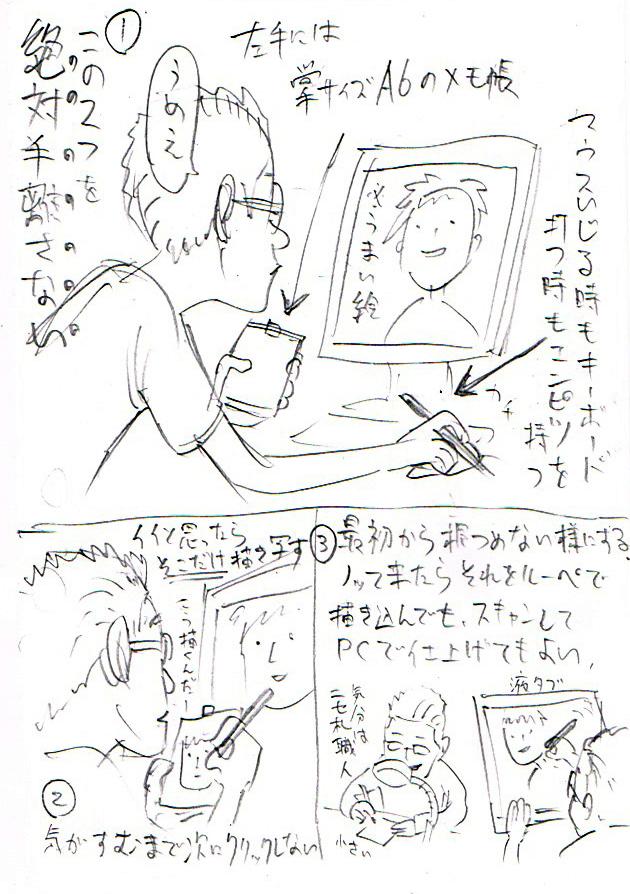 ①
左手には
掌サイズA6のメモ帳
この2つを
絶対手離さない
うめえ
マウスいじる時もキーボード
打つ時もエンピツを
持つ
※うまい絵
カチッ
イイと思ったら
そこだけ描き写す
こう描くんだー
②
気がすむまで次にクリックしない
③最初から根つめない様にする。
ノッて来たらそれをルーペで
描き込んでも、スキャンして
PCで仕上げてもよい。
気分は
ニセ札職人
小さい
液タブ